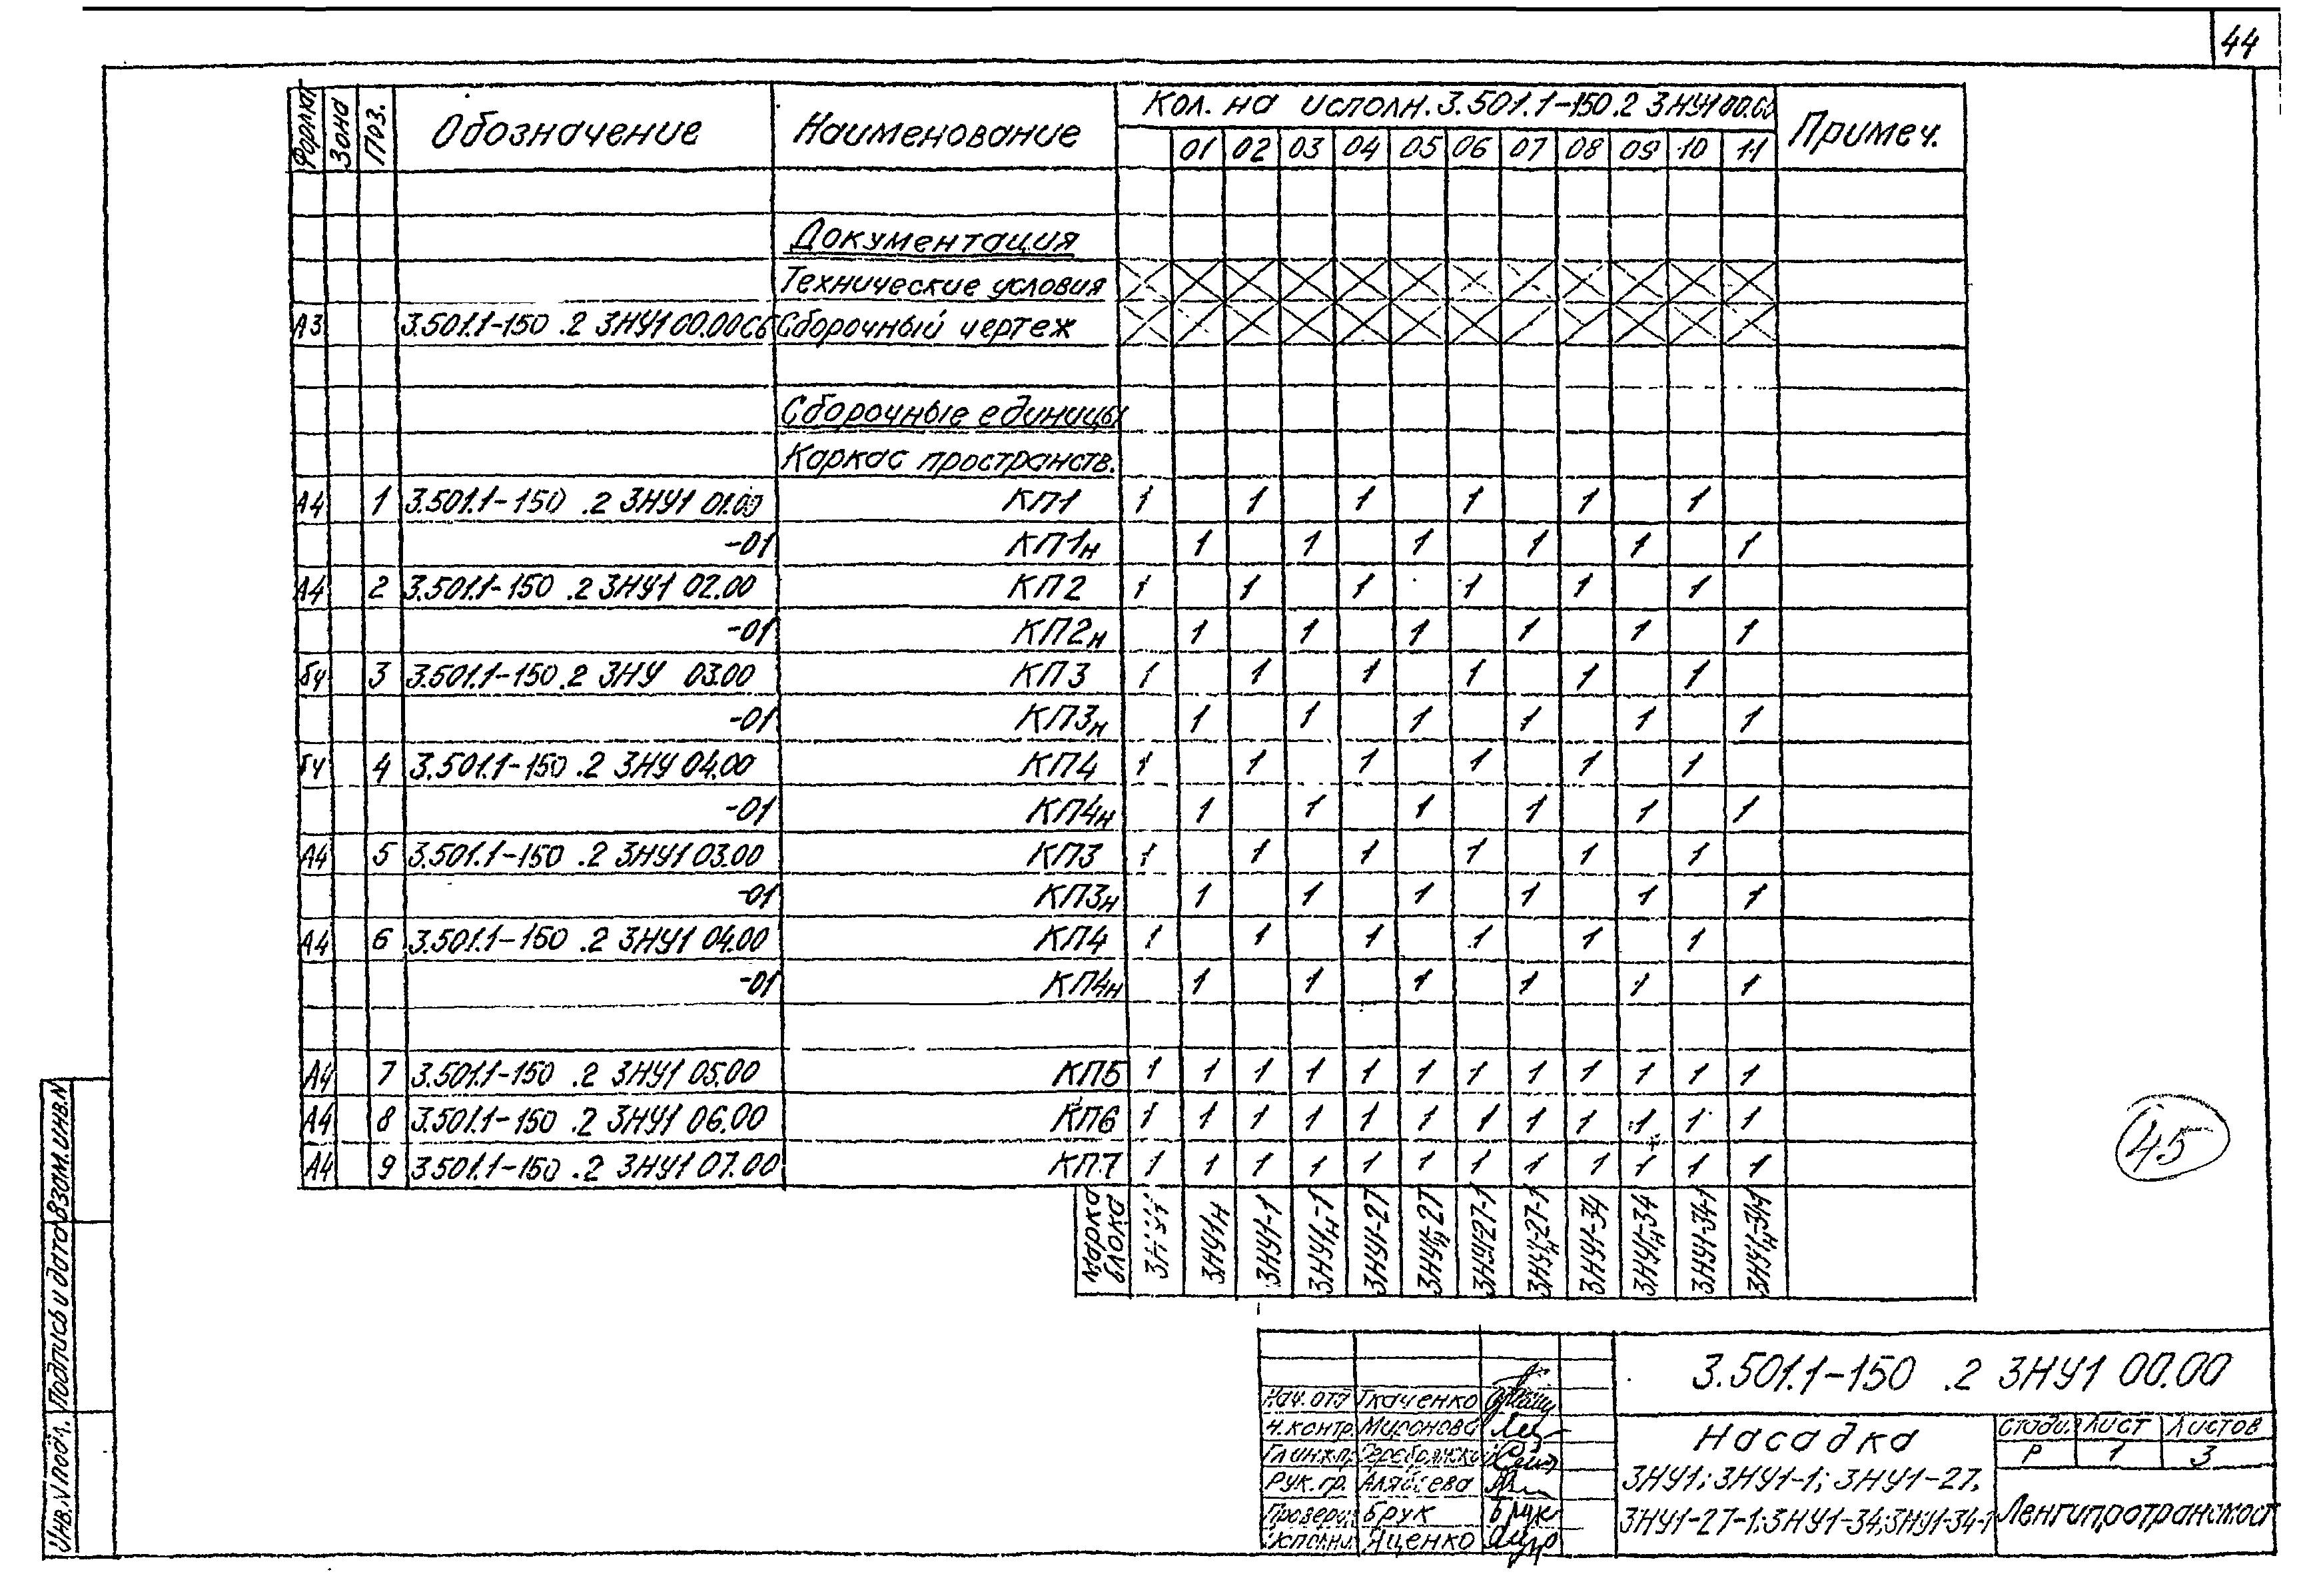 44
Формат Зона Поз. Обозначение Наименование Кол. на исполн. 3.501.1-150.2 3НУ1 00.00 Примеч.
01 02 03 04 05 06 07 08 09 10 11
Документация
Технические условия
А3 3.501.1-150 .2 3НУ1 00.00СБ Сборочный чертеж
Сборочные единицы
Каркас пространств.
А4 1 3.501.1-150 .2 3НУ1 01.00 КП1 1 1 1 1 1 1
-01 КП1н 1 1 1 1 1 1
А4 2 3.501.1-150 .2 3НУ1 02.00 КП2 1 1 1 1 1 1
-01 КП2н 1 1 1 1 1 1
бч 3 3.501.1-150 .2 3НУ 03.00 КП3 1 1 1 1 1 1
-01 КП3н 1 1 1 1 1 1
бч 4 3.501.1-150 .2 3НУ 04.00 КП4 1 1 1 1 1 1
-01 КП4н 1 1 1 1 1 1
А4 5 3.501.1-150 .2 3НУ1 03.00 КП3 1 1 1 1 1 1
-01 КП3н 1 1 1 1 1 1
А4 6 3.501.1-150 .2 3НУ1 04.00 КП4 1 1 1 1 1 1
-01 КП4н 1 1 1 1 1 1
А4 7 3.501.1-150 .2 3НУ1 05.00 КП5 1 1 1 1 1 1 1 1 1 1 1 1
А4 8 3.501.1-150 .2 3НУ1 06.00 КП6 1 1 1 1 1 1 1 1 1 1 1 1
А4 9 3.501.1-150 .2 3НУ1 07.00 КП7 1 1 1 1 1 1 1 1 1 1 1 1
Марка блока 3НУ1 3НУ1н 3НУ1-1 3НУ1н-1 3НУ1-27 3НУ1н-27 3НУ1-27-1 3НУ1н-27-1 3НУ1-34 3НУ1н-34 3НУ1-34-1 3НУ1н-34-1
45
Инв. N подл. Подпись и дата Взам. инв. N
3.501.1-150 .2 3НУ1 00.00
Нач. отд Ткаченко
Н. контр. Миронова
Гл. инж. пр.
Рук. гр. Алябьева
Провери. Брук Брук
Исполни. Яценко
Насадка
3НУ1; 3НУ1-1; 3НУ1-27;
3НУ1-27-1; 3НУ1-34; 3НУ1-34-1
Стади. Лист Листов
Р 1 3
Ленгипротрансмост